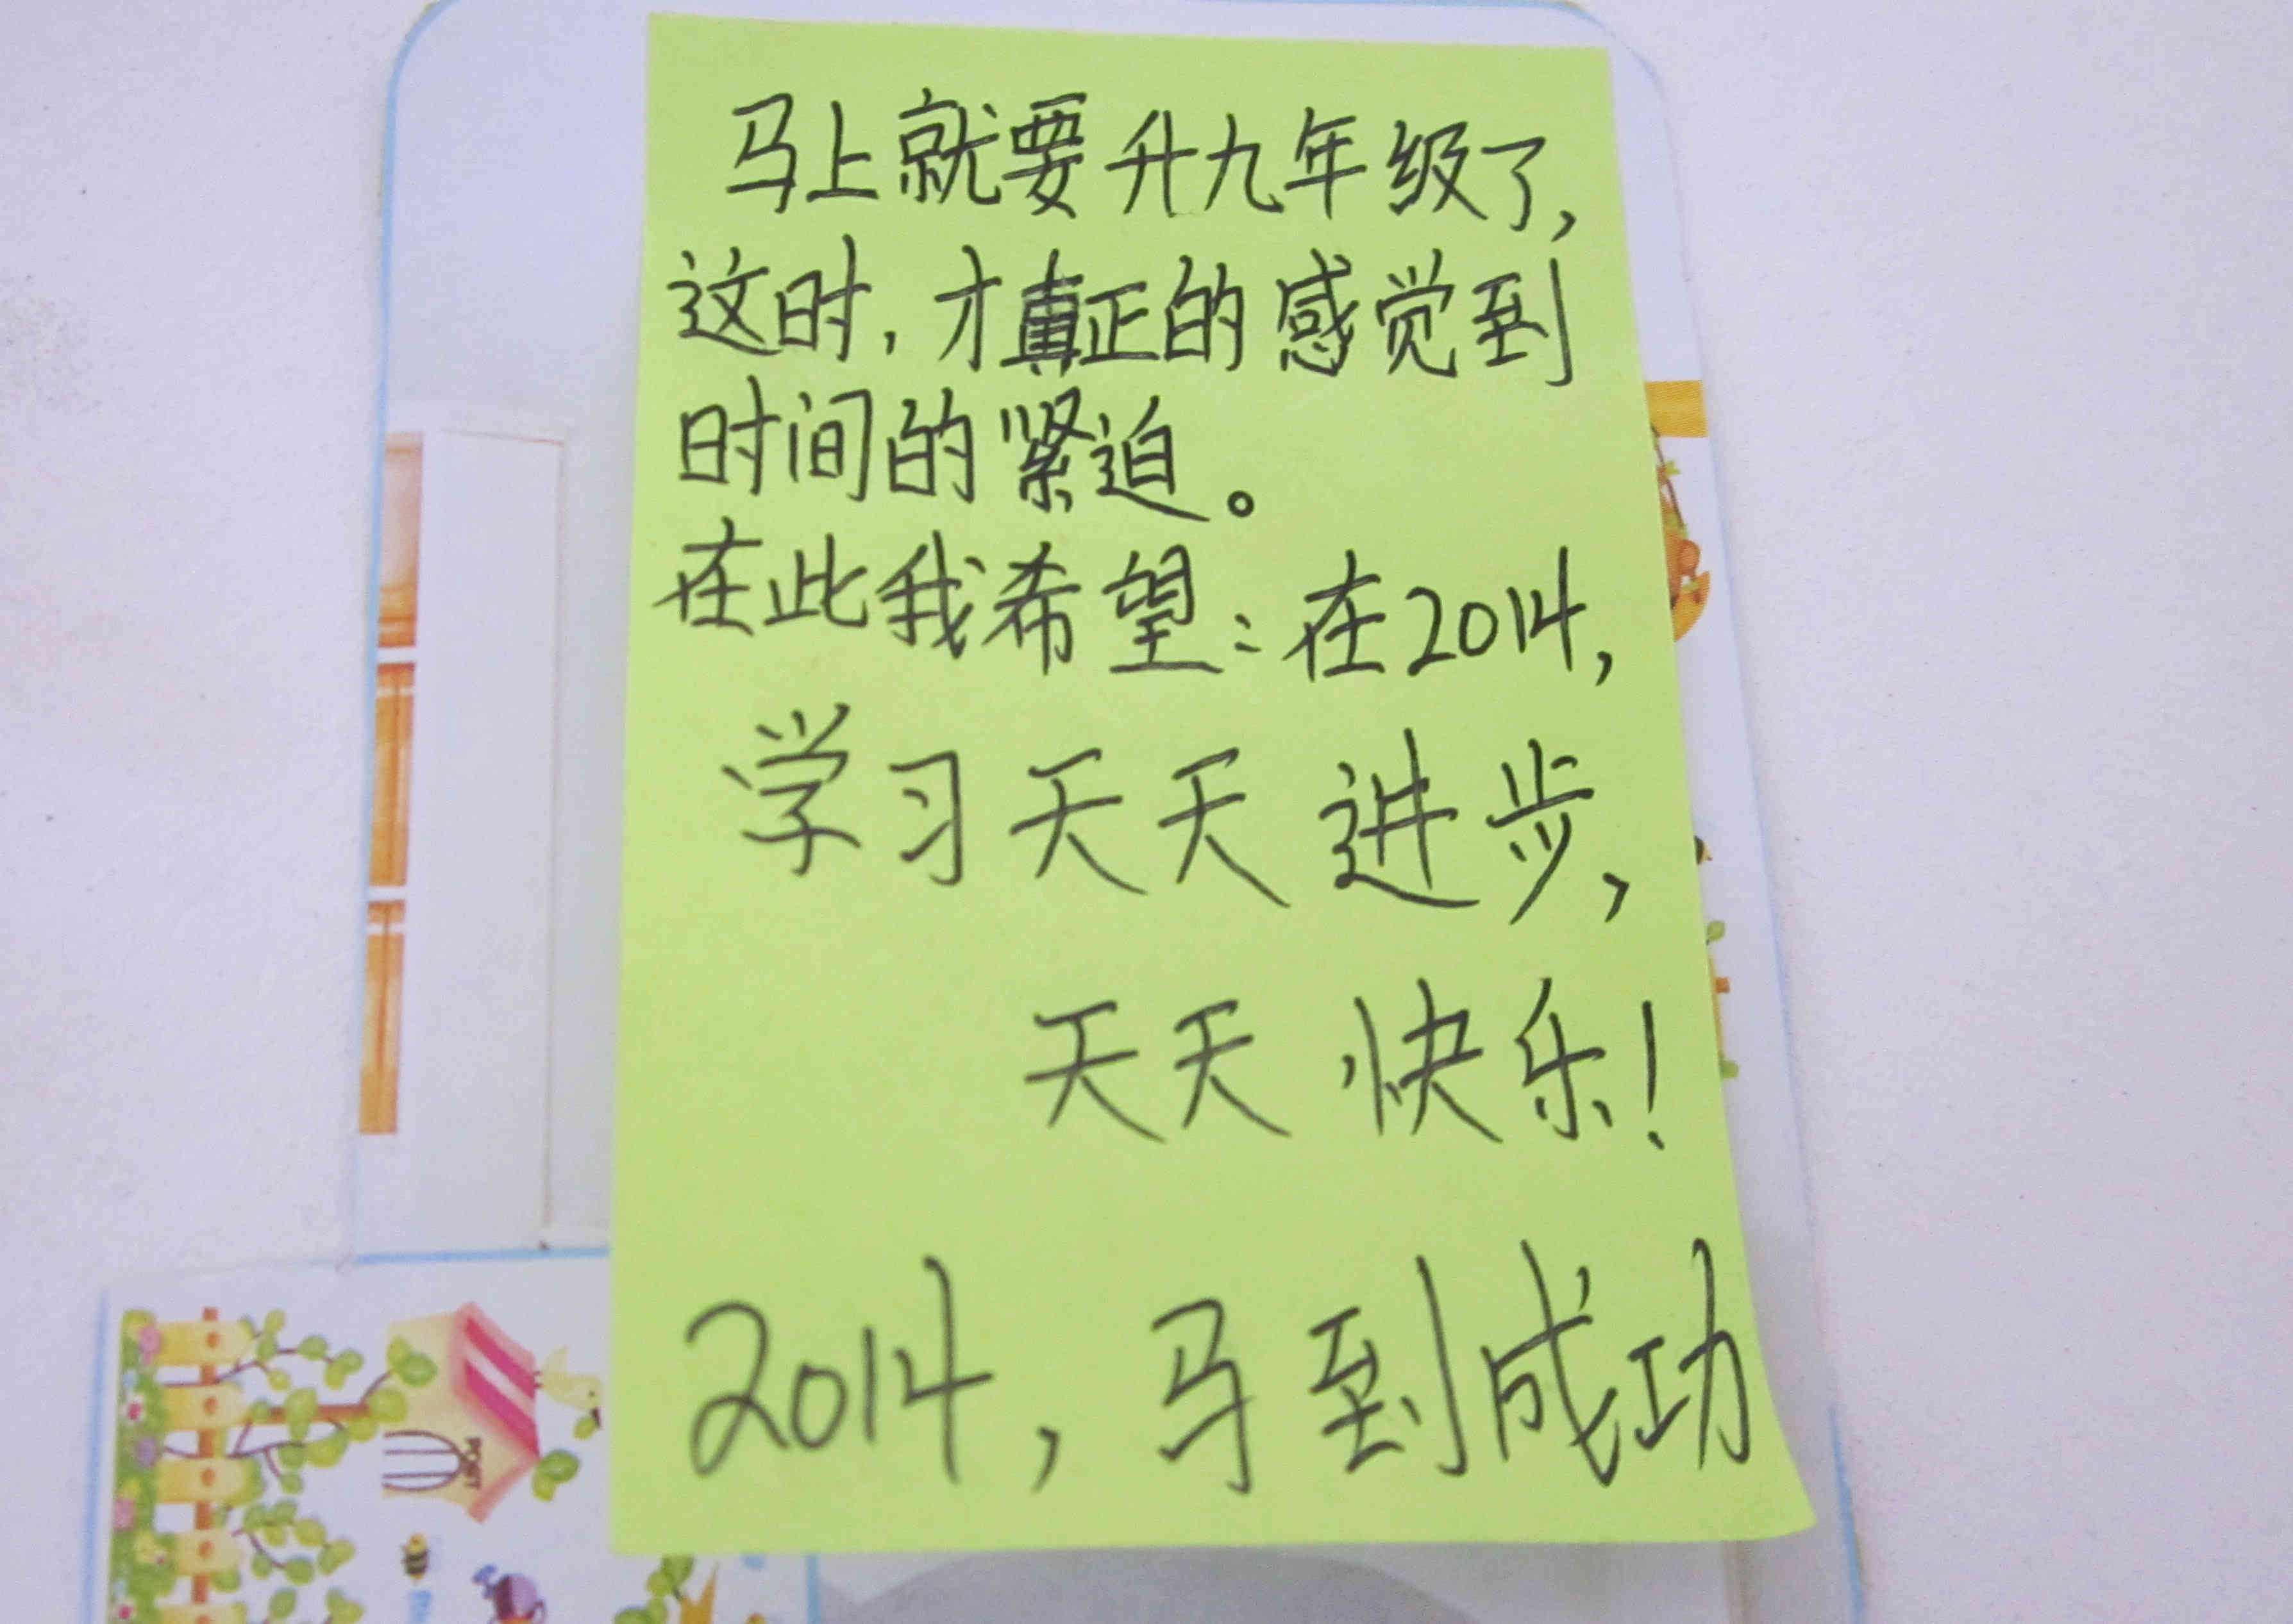 马上就要升九年级了,
这时,才真正的感觉到
时间的紧迫。
在此我希望:在2014,
学习天天进步,
天天快乐!
2014,马到成功
POST